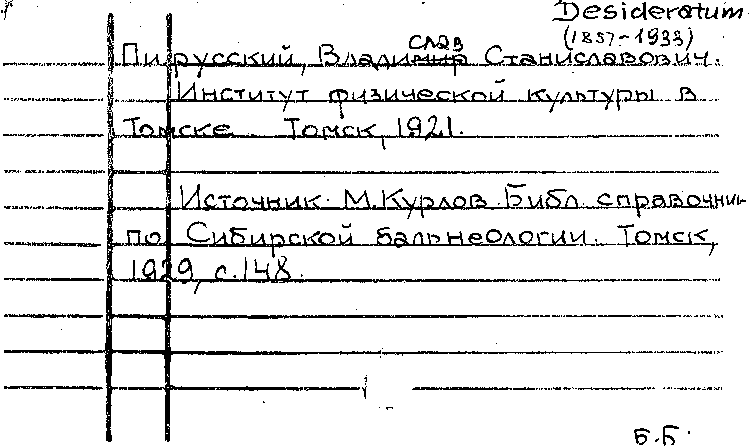 Desideratum
(1857-1933)
Пирусский, Владислав Станиславович.
Институт физической культуры в
Томске. Томск, 1921.
Источник: М. Курлов. Библ. справочник
по Сибирской бальнеологии. Томск,
1929, с. 148.
Б.Б.